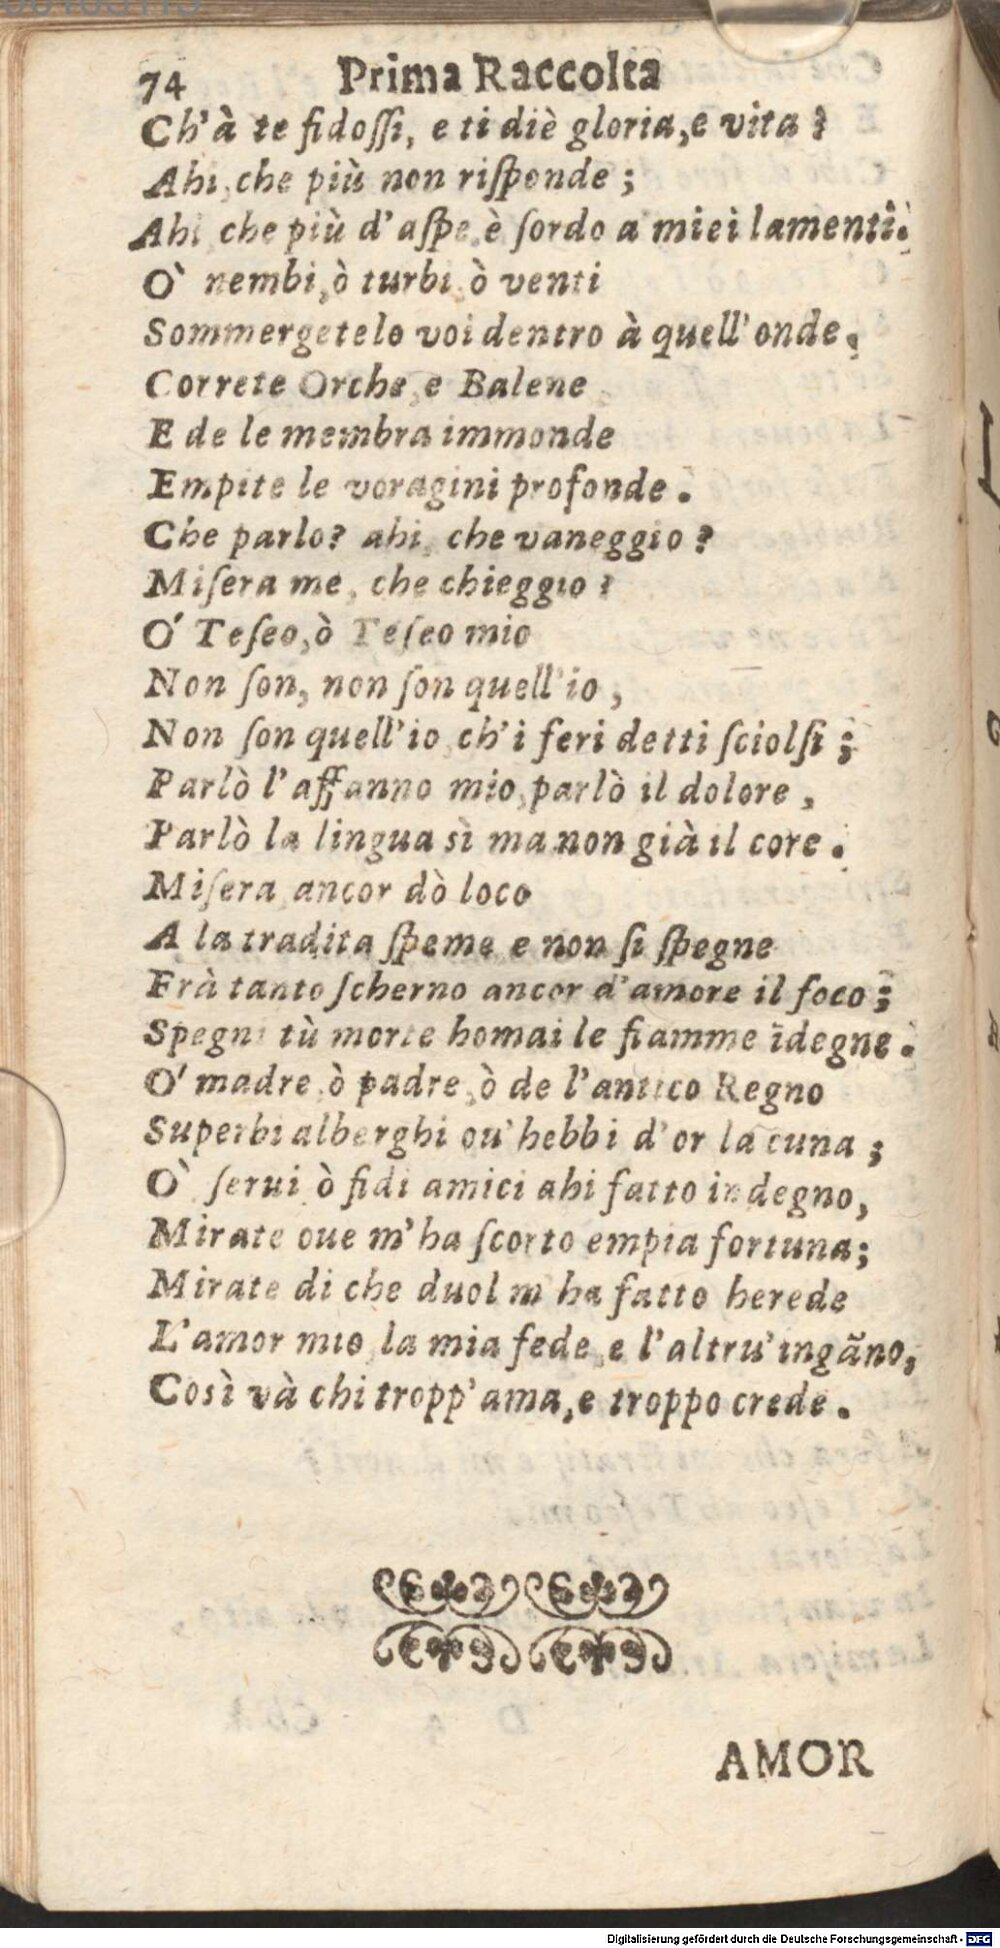 74 Prima Raccolta
Ch'à te fidoſſi, e ti diè gloria, e vita?
Ahi, che più non riſponde;
Ahi che più d'aſpe è ſordo a miei lamenti.
Ò nembi, ò turbi ò venti
Sommergetelo voi dentro à quell'onde,
Correte Orche, e Balene
E de le membra immonde
Empite le voragini profonde.
Che parlo? ahi, che vaneggio?
Miſera me, che chieggio?
Ó Teſeo, ò Teſeo mio
Non ſon, non ſon quell'io,
Non ſon quell'io ch'i feri detti ſciolſi;
Parlò l'affanno mio, parlò il dolore,
Parlò la lingua sì ma non già il core.
Miſera ancor dò loco
A la tradita ſpeme e non ſi ſpegne
Frà tanto ſcherno ancor d'amore il foco;
Spegni tù morte homai le fiamme īdegne.
Ó madre ò padre, ò de l'antico Regno
Superbi alberghi ou'hebbi d'or la cuna;
Ò ſerui ò fidi amici ahi fatto indegno,
Mirate oue m'ha ſcorto empia fortuna;
Mirate di che duol m'ha fatto herede
L'amor mio, la mia fede, e l'altru'ingãno,
Così và chi tropp'ama, e troppo crede.
AMOR
Digitalisierung gefördert durch die Deutsche Forschungsgemeinschaft - DFG